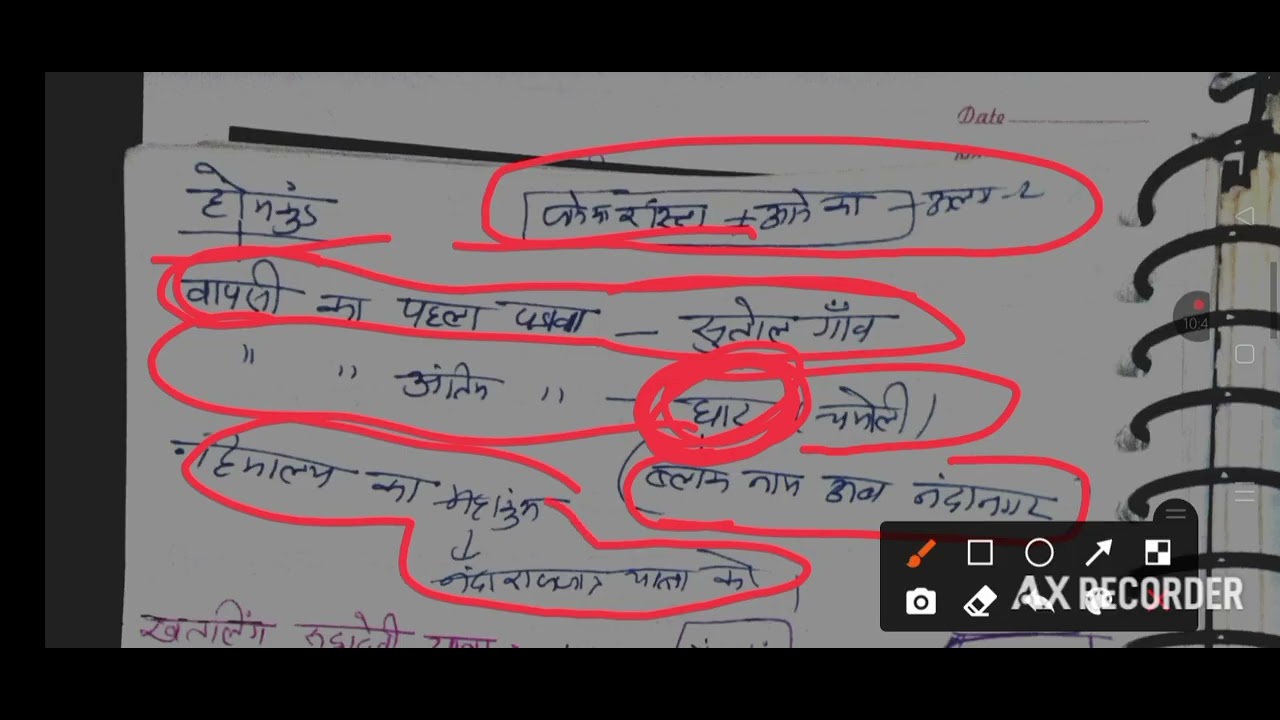 Date
होमकुंड
जाने का रास्ता + आने का - अलग-2
वापसी का पहला पड़ाव - सुतोल गाँव
" " अंतिम " - घाट (चमोली)
(ब्लाक नाम अब नंदानगर
हिमालय का महाकुंभ
↓
नंदा राजजात यात्रा को
खतलिंग रुद्रादेवी यात्रा
10:4
AX RECORDER